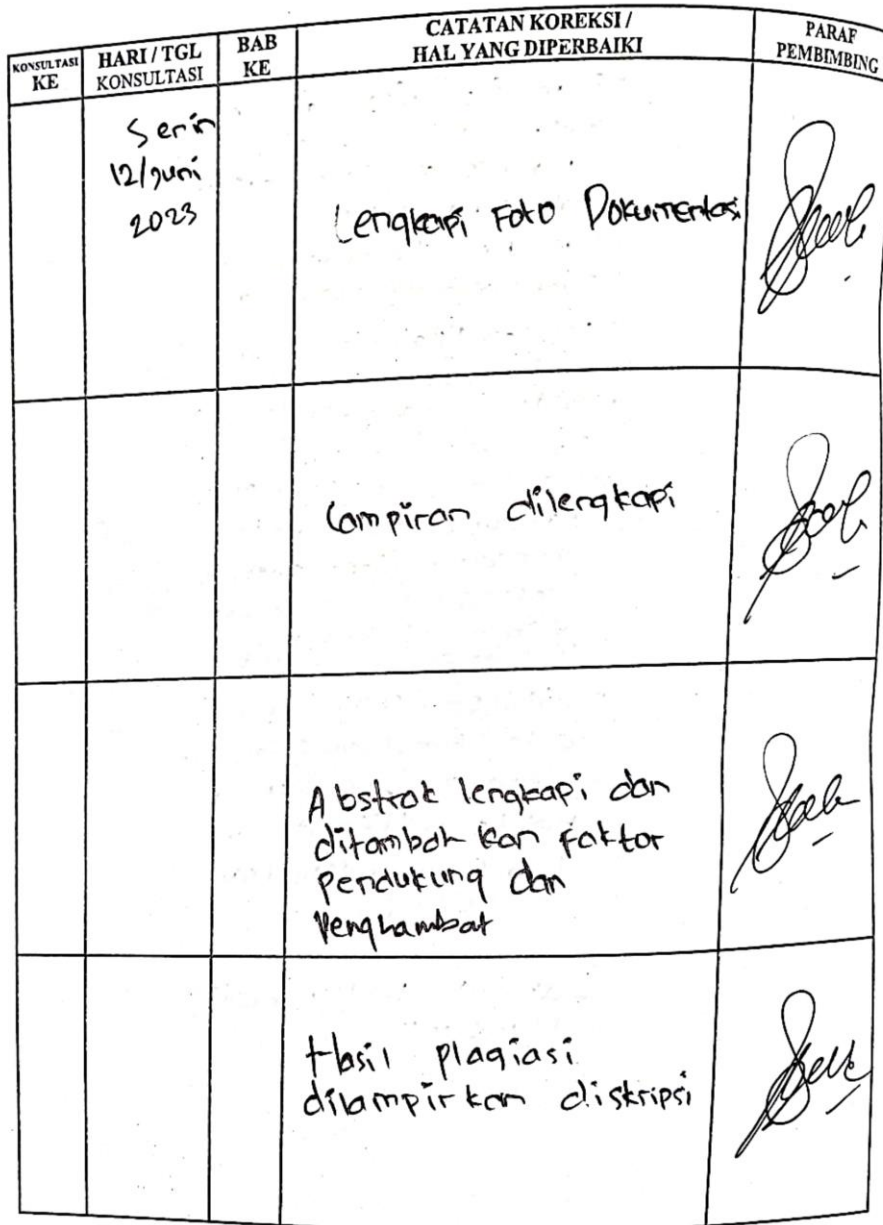 KONSULTASI KE
HARI / TGL KONSULTASI
BAB KE
CATATAN KOREKSI / HAL YANG DIPERBAIKI
PARAF PEMBIMBING
Senin
12/Juni
2023
Lengkapi Foto Dokumentasi
Lampiran dilengkapi
Abstrak lengkapi dan
ditambah kan faktor
pendukung dan
Penghambat
Hasil plagiasi
dilampirkan diskripsi